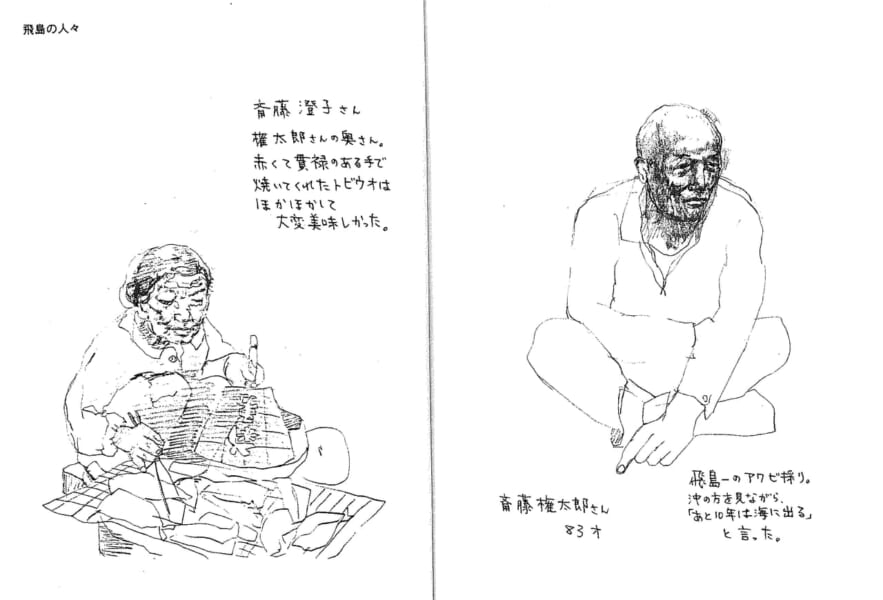 飛島の人々
斎藤 澄子さん
権太郎さんの奥さん。
赤くて貫禄のある手で
焼いてくれたトビウオは
ほかほかして
大変美味しかった。
斎藤権太郎さん
83才
飛島一のアワビ採り。
沖の方を見ながら、
「あと10年は海に出る」
と言った。